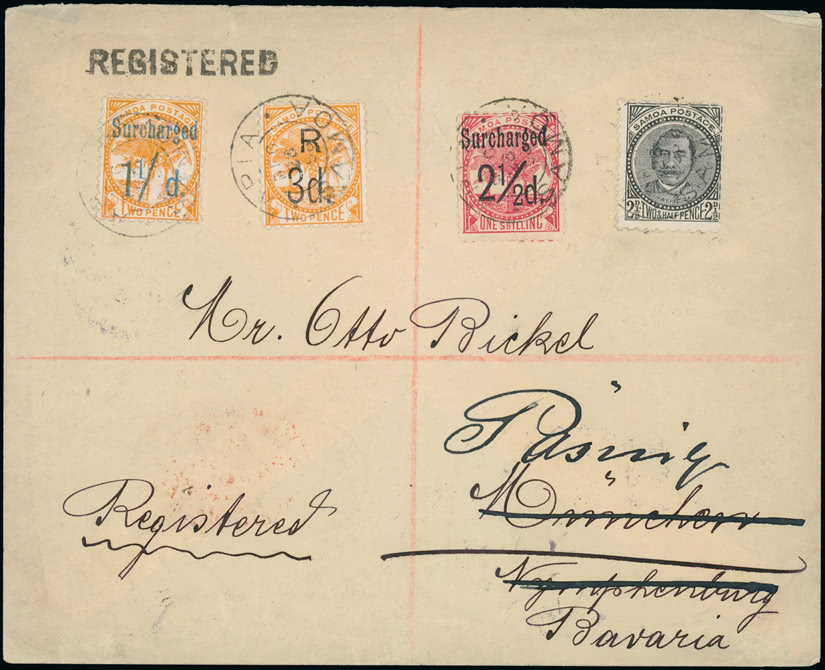 REGISTERED
SAMOA POSTAGE
Surcharged
1½ d.
TWO PENCE
SAMOA POSTAGE
R
3d.
TWO PENCE
APIA SAMOA
SAMOA POSTAGE
Surcharged
2½d.
ONE SHILLING
SAMOA
SAMOA POSTAGE
TWO & HALF PENCE
Mr. Otto Bickel
Registered
Pasing
München
Nymphenburg
Bavaria